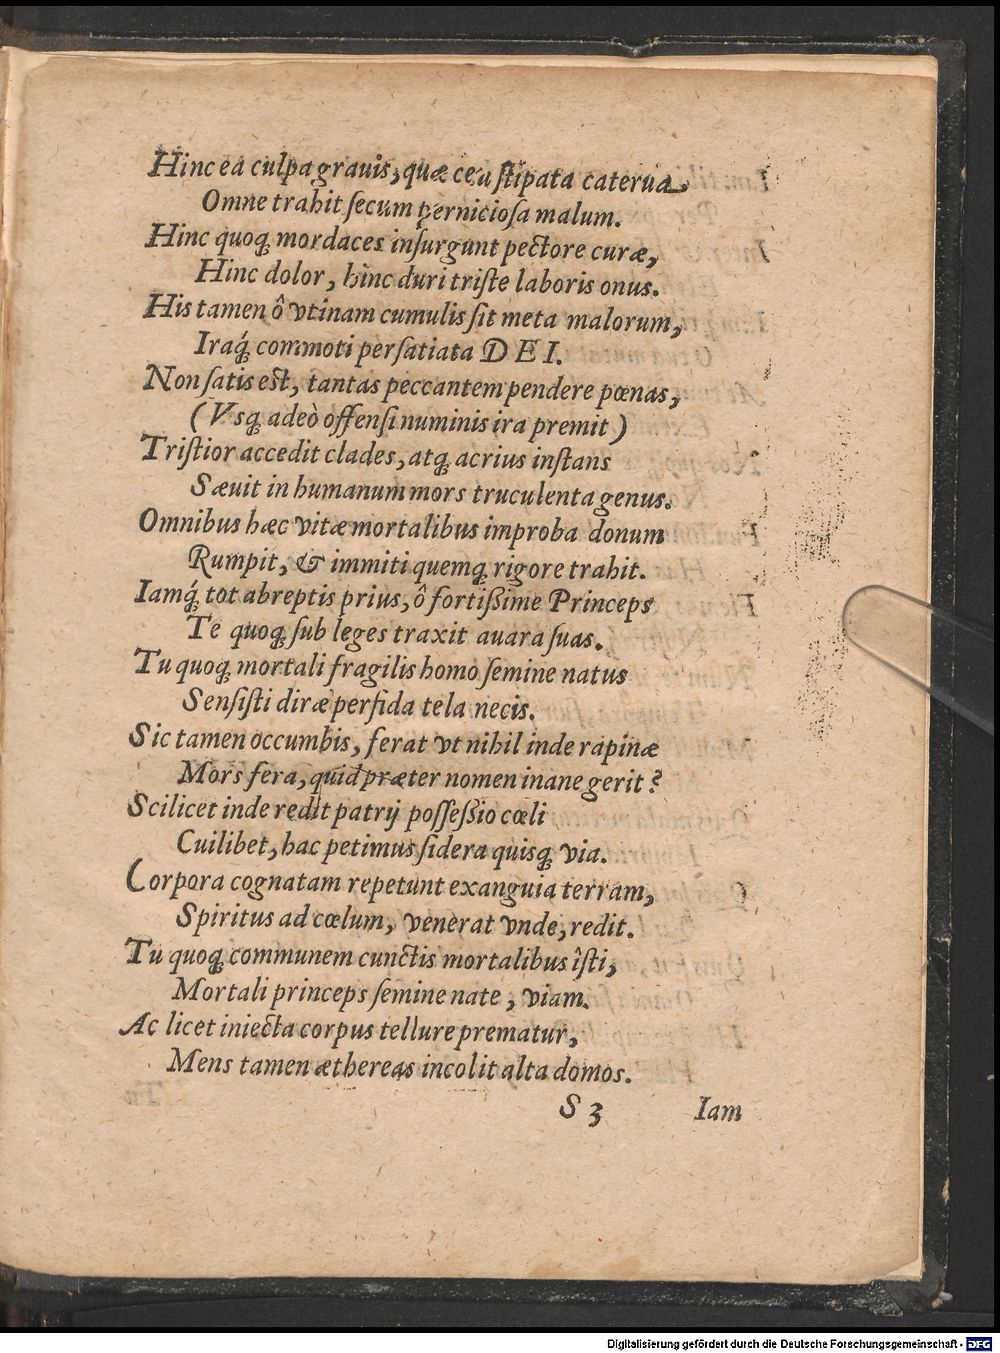 Hinc ea culpa grauis, quæ ceu ſtipata caterua,
Omne trahit ſecum pernicioſa malum.
Hinc quoq; mordaces inſurgunt pectore curæ,
Hinc dolor, hinc duri triſte laboris onus.
His tamen ô vtinam cumulis ſit meta malorum,
Iraq́; commoti per ſatiata DEI.
Non ſatis est, tantas peccantem pendere pœnas,
(Vsq; adeò offenſi numinis ira premit)
Triſtior accedit clades, atq; acrius inſtans
Sæuit in humanum mors truculenta genus.
Omnibus hæc vitæ mortalibus improba donum
Rumpit, & immiti quemq; rigore trahit.
Iamq́; tot abreptis prius, ô fortißime Princeps
Te quoq; ſub leges traxit auara ſuas.
Tu quoq; mortali fragilis homo ſemine natus
Senſiſti diræ perfida tela necis.
Sic tamen occumbis, ferat vt nihil inde rapinæ
Mors fera, quid præter nomen inane gerit?
Scilicet inde redit patrij poſſeßio cœli
Cuilibet, hac petimus ſidera quisq; via.
Corpora cognatam repetunt exanguia terram,
Spiritus ad cœlum, venerat vnde, redit.
Tu quoq; communem cunctis mortalibus îſti,
Mortali princeps ſemine nate, viam.
Ac licet iniecta corpus tellure prematur,
Mens tamen æthereas incolit alta domos.
S 3 Iam
Digitalisierung gefördert durch die Deutsche Forschungsgemeinschaft - DFG